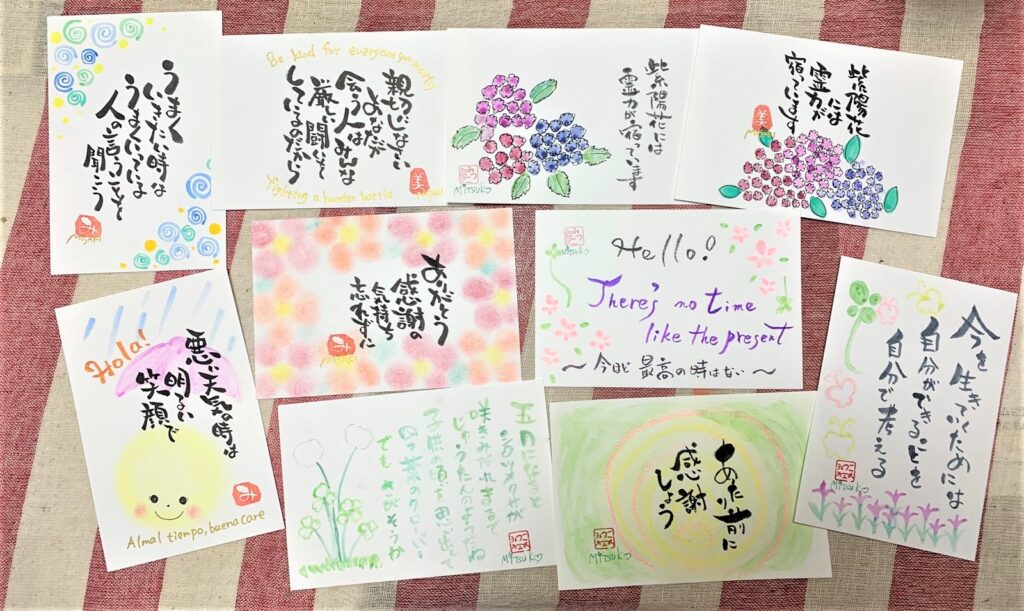 うまく
いきたい時は
うまくいっている
人の言うことを
聞こう
MISAKI
Be kind for everyone you meet is
親切にしなさい
あなたが
会う人はみんな
厳しい闘いを
しているのだから
fighting a harder battle.
美
紫陽花には
霊力が宿っています
Mitsuko
紫陽花
には
霊力が
宿っています
美
ありがとう
感謝の
気持ち
忘れずに
み
Mitsuko
Hello!
There's no time
like the present
～今ほど最高の時はない～
今を生きていくためには
自分ができることを
自分で考える
Mitsuko
Hola!
悪い天気の時は
明るい
笑顔で
み
Almal tiempo, buena care
五月になると
シロツメクサが
咲きみだれまるで
じゅうたんのようだね
子供の頃を思い出して
四つ葉のクローバー
でもさがそうか
Mitsuko
あたり前に
感謝
しよう
Mitsuko